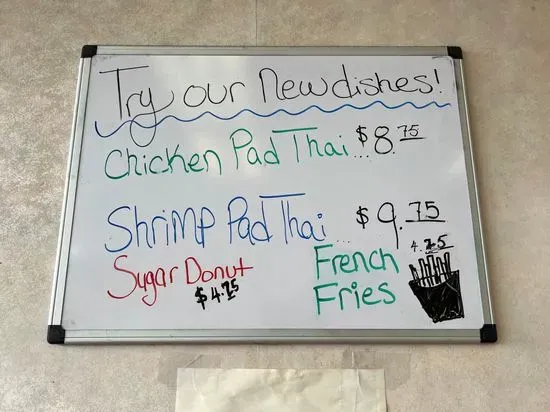 Try our New dishes!
Chicken Pad Thai ... $8.75
Shrimp Pad Thai ... $9.75
Sugar Donut
$4.75
French
Fries